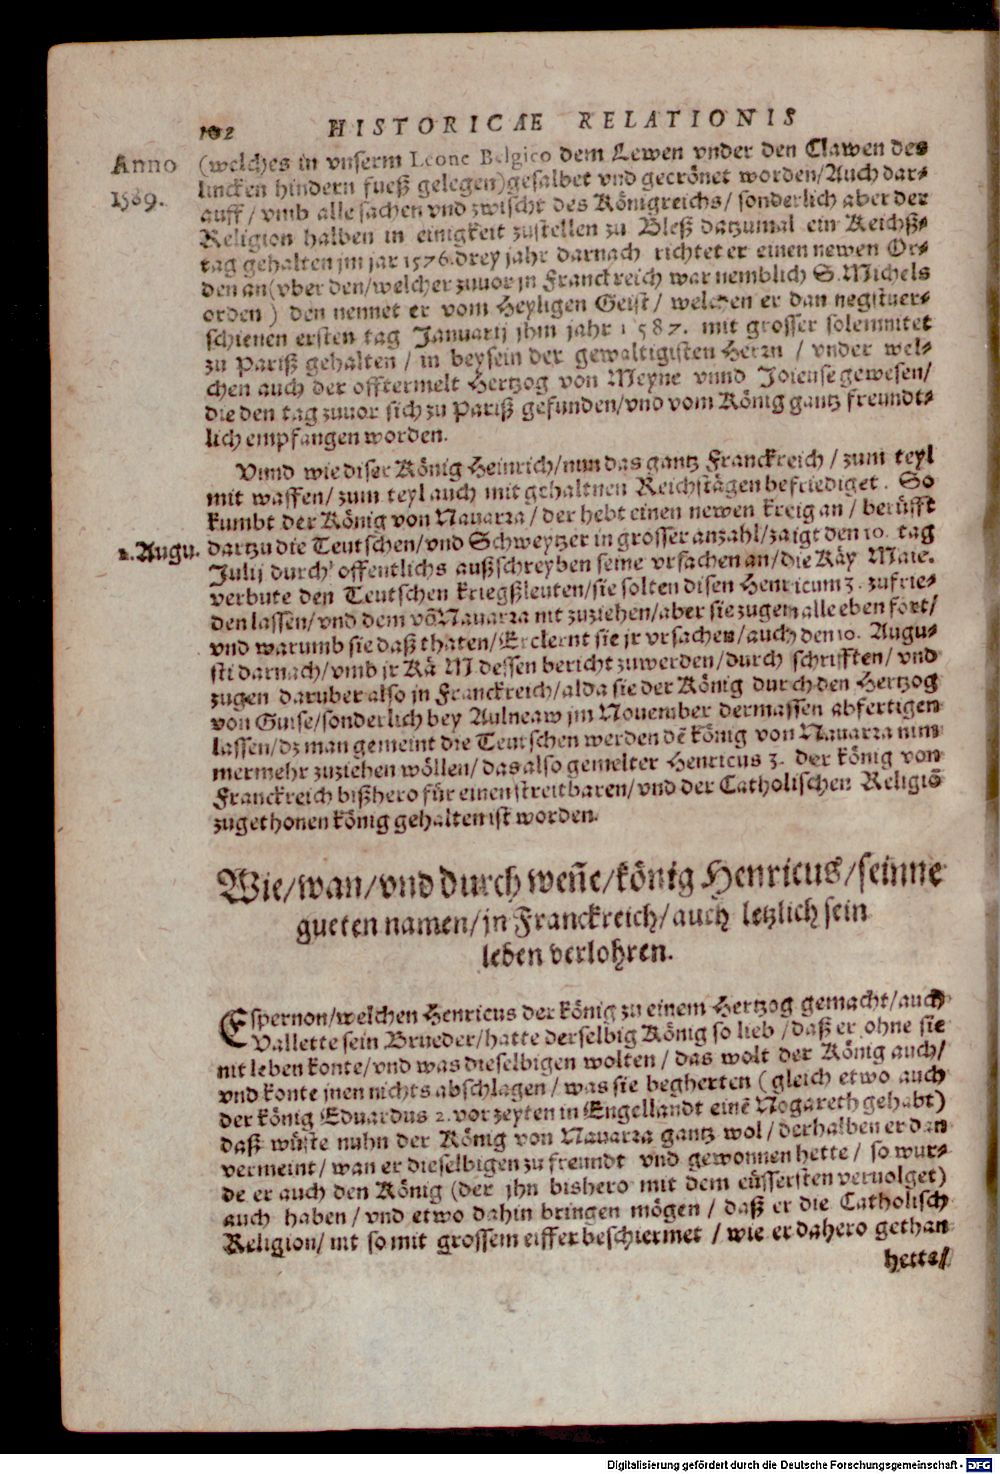 102 HISTORICÆ RELATIONIS
Anno
1589.
(welches in vnserm Leone Belgico dem Lewen vnder den Clawen des
lincken hindern fueß gelegen) gesalbet vnd gecrönet worden/ Auch dar-
auff/ vmb alle sachen vnd zwischt des Königreichs/ sonderlich aber der
Religion halben in einigkeit zustellen zu Bleß datzumal ein Reichß-
tag gehalten jm jar 1576. drey jahr darnach richtet er einen newen Or-
den an (vber den/ welcher zuuor jn Franckreich war nemblich S. Michels
orden) den nennet er vom Heyligen Geist/ welchen er dan negstuer-
schienen ersten tag Januarij jhm jahr 1587. mit grosser solemnitet
zu Pariß gehalten/ in beysein der gewaltigisten Herrn/ vnder wel-
chen auch der offtermelt Hertzog von Meyne vnnd Joieuse gewesen/
die den tag zuuor sich zu Pariß gefunden/ vnd vom König gantz freundt-
lich empfangen worden.
Vnnd wie diser König Heinrich/ nun das gantz Franckreich/ zum teyl
mit waffen/ zum teyl auch mit gehaltnen Reichstägen befriediget. So
kumbt der König von Nauarra/ der hebt einen newen kreig an/ berüfft
1. Augu. dartzu die Teutschen/ vnd Schweytzer in grosser anzahl/ zaigt den 10. tag
Julij durch offentlichs außschreyben seine vrsachen an/ die Käy Maie.
verbute den Teutschen kriegßleuten/ sie solten disen Henricum 3. zufrie-
den lassen/ vnd dem võ Nauarra nit zuziehen/ aber sie zugen alle eben fort/
vnd warumb sie daß thaten/ Erclernt sie jr vrsachen/ auch den 10. Augu-
sti darnach/ vmb jr Kä M dessen bericht zuwerden/ durch schrifften/ vnd
zugen daruber also jn Franckreich/ alda sie der König durch den Hertzog
von Guise/ sonderlich bey Aulneaw jm Nouember dermassen abfertigen
lassen/ dz man gemeint die Teutschen werden dẽ könig von Nauarra nim
mermehr zuziehen wöllen/ das also gemelter Henricus 3. der könig von
Franckreich bißhero für einen streitbaren/ vnd der Catholischen Religiõ
zugethonen könig gehalten ist worden.
Wie/ wan/ vnd durch weñe/ könig Henricus/ seinne
gueten namen/ jn Franckreich/ auch letzlich sein
leben verlohren.
Espernon/ welchen Henricus der könig zu einem Hertzog gemacht/ auch
Vallette sein Brueder/ hatte derselbig König so lieb/ daß er ohne sie
nit leben konte/ vnd was dieselbigen wolten/ das wolt der König auch/
vnd konte jnen nichts abschlagen/ was sie begherten (gleich etwo auch
der könig Eduardus 2. vor zeyten in Engellandt einẽ Nogareth gehabt)
daß wüste nuhn der König von Nauarra gantz wol/ derhalben er dan
vermeint/ wan er dieselbigen zu freundt vnd gewonnen hette/ so wur-
de er auch den König (der jhn bishero mit dem eüssersten veruolget)
auch haben/ vnd etwo dahin bringen mögen/ daß er die Catholisch
Religion/ nit so mit grossem eiffer beschiermet/ wie er dahero gethan
hette/
Digitalisierung gefördert durch die Deutsche Forschungsgemeinschaft - DFG